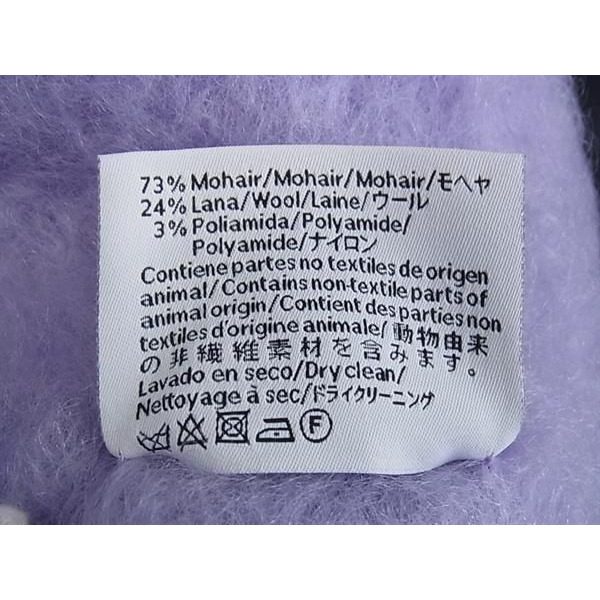 73% Mohair/Mohair/Mohair/モヘヤ
24% Lana/Wool/Laine/ウール
3% Poliamida/Polyamide/
Polyamide/ナイロン
Contiene partes no textiles de origen
animal/Contains non-textile parts of
animal origin/Contient des parties non
textiles d'origine animale/動物由来
の非繊維素材を含みます。
Lavado en seco/Dry clean/
Nettoyage à sec/ドライクリーニング
F